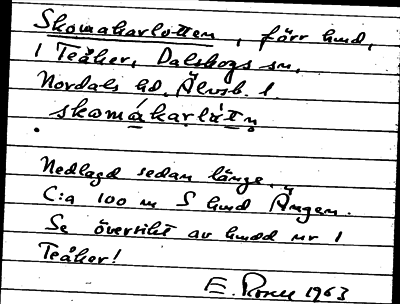 Skomakarlotten, förr hmd,
1 Teåker, Dalskogs sn,
Nordals hd, Älvsb. l.
skomákarlàttn
Nedlagd sedan länge.
C:a 100 m S hmd Ängen.
Se översikt av hmdd nr 1
Teåker!
E. 1963